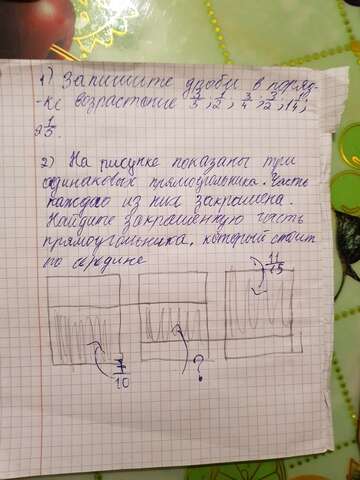 1) Запишите дроби в поряд-
-ке возрастение 3/5, 1/2, 3/4, 3/2, 14,
2 1/5.
2) На рисунке показаны три
одинаковых прямодильника. Часть
каждаю из них закрашена.
Найдите закрашенную часть
прямоугольника, который стоит
по середине
11/15
7/10
?